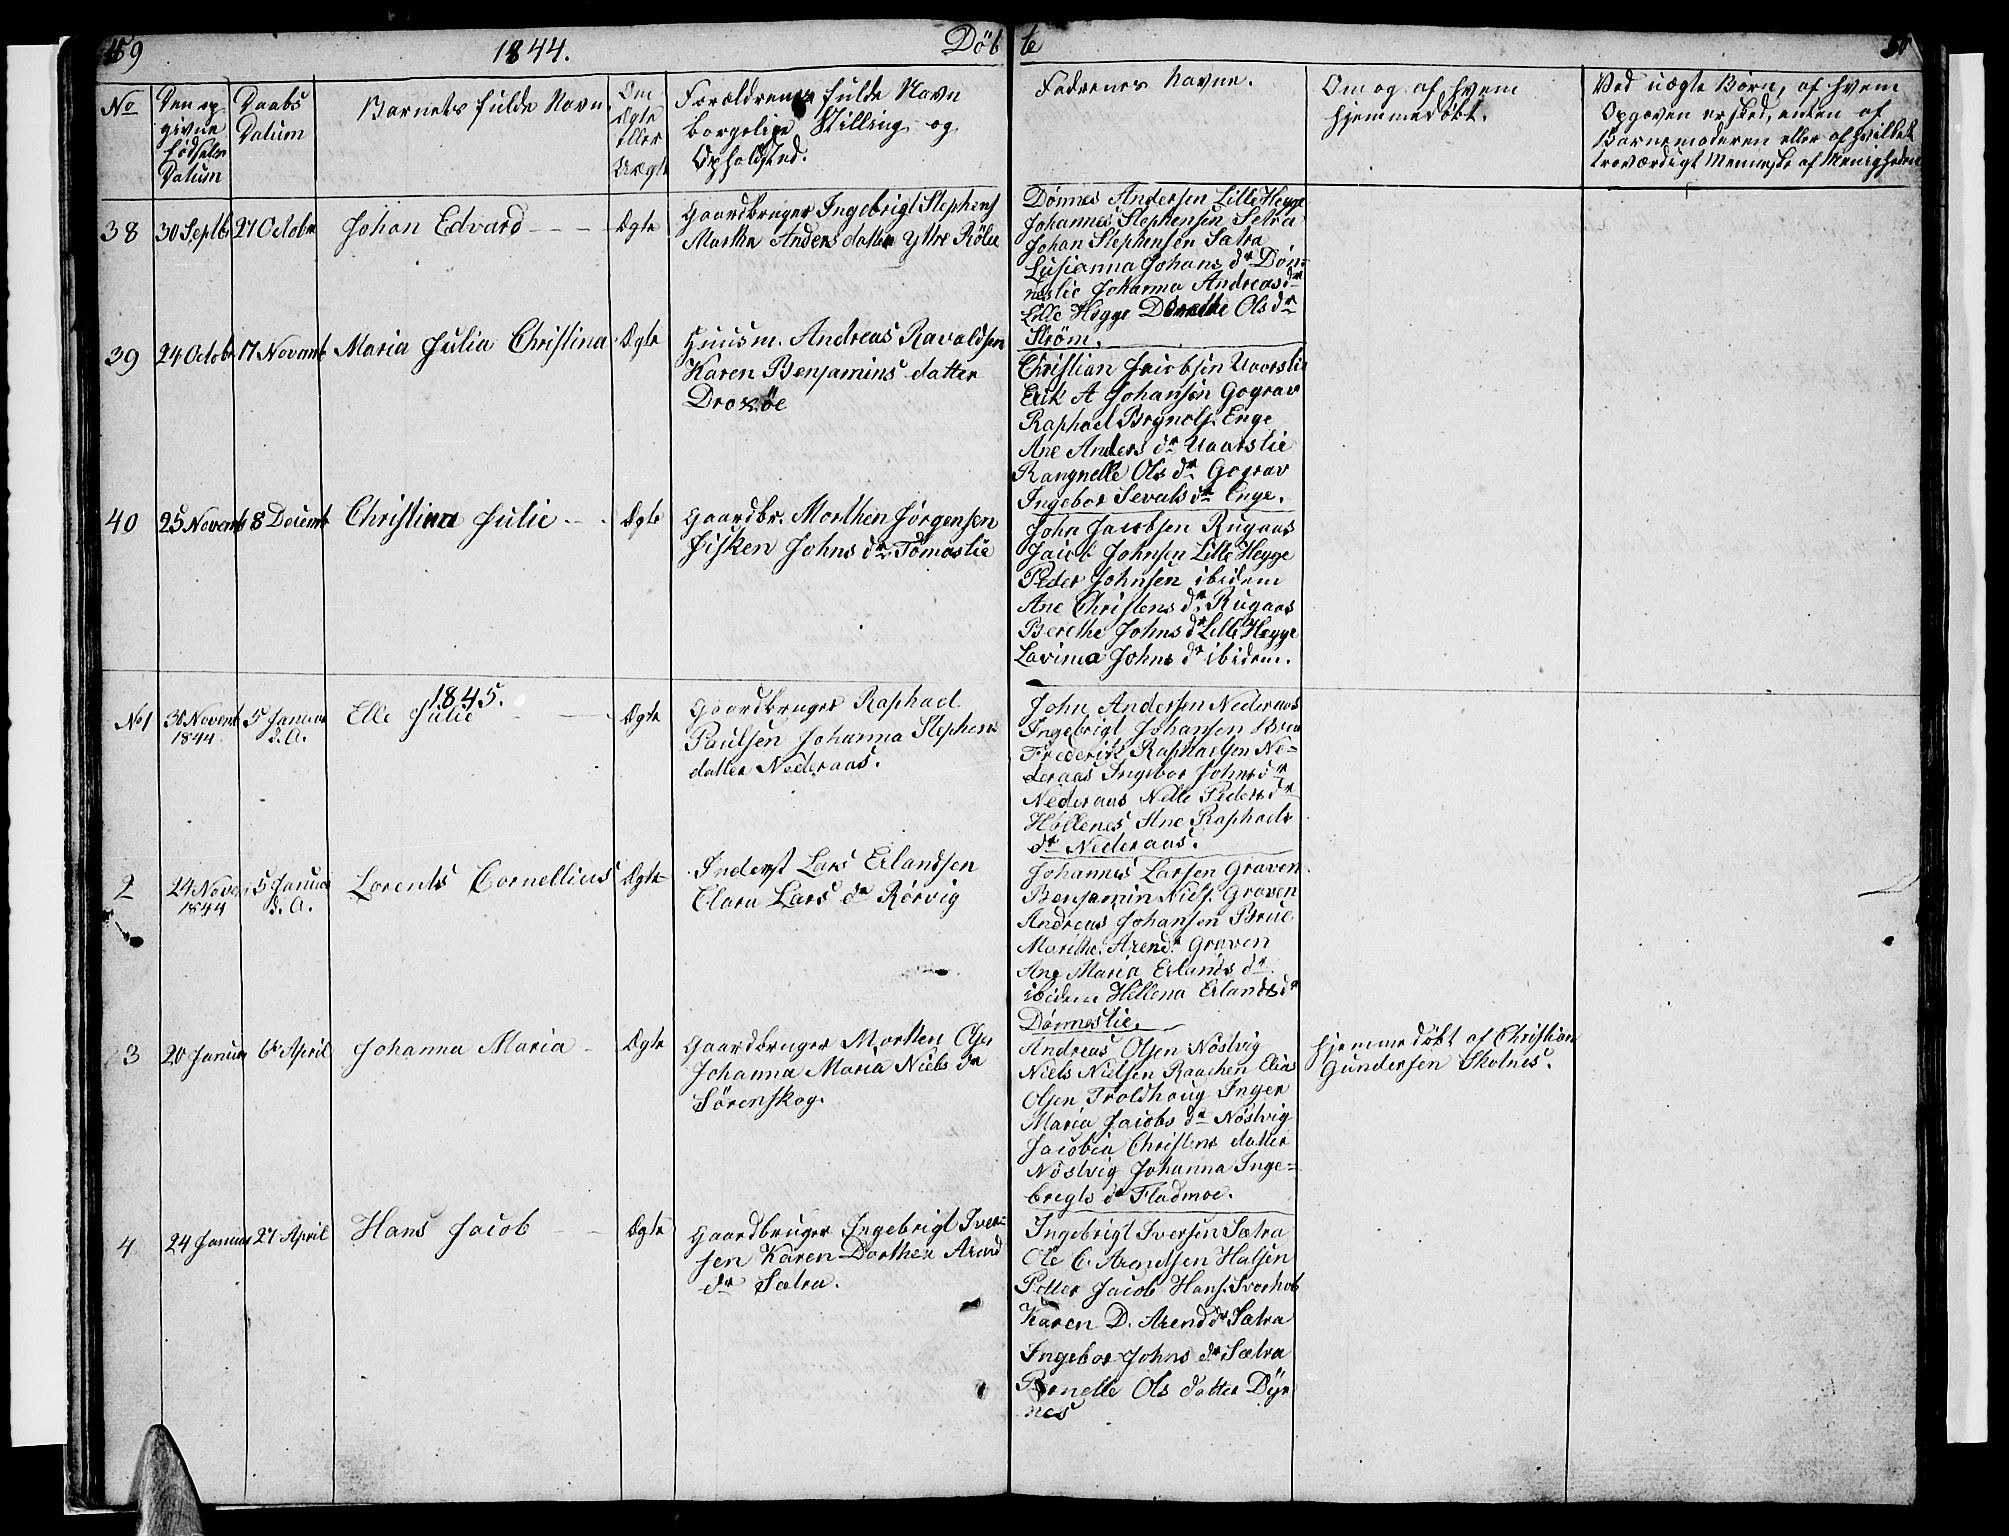 49 1844. Döbte 50
No
Den op
givne
Födsels
Datum
Daabs
Datum
Barnets fulde Navn.
Om
Ægte
eller
Uægte
Forældrenes fulde Navn
borgelige Stilling og
Opholdsted.
Fadrenes Navne.
Om og af hvem
hjemmedöbt.
Ved uægte Börn, af hvem
Opgaven er sked, enten af
Barnemoderen eller af hvilket
troværdigt Menneske af Menigheden
38 30 Septbr 27 Octobr Johan Edvard Ægte
Gaardbruger Ingebrigt Stephens
Martha Anders datter Yttre Röle
Dönnes Andersen Lille Hegge
Johannes Stephensen Setra
Johan Stephensen Satra
Lusianna Johans dr Dön=
neslie Johanna Andreasdr
Lille Hegge Dorthe Ols dr
Ström.
39 24 Octob 17 Novemb Maria Julia Christina Ægte
Huusm. Andreas Ravaldsen
Karen Benjamins datter
Droxöe
Christian Jacobsen Uvarslie
Erik A Johansen Gograv
Raphael Brynols. Enge
Ane Anders dr Uvarslie
Rangnelle Ols dr Gograv
Ingebor Sevals dr Enge.
40 25 Novemb 8 Decemb Christina Julie Ægte
Gaardbr. Morthen Jörgensen
Fisken Johns dr Tömaslie
John Jacobsen Rugaas
Jacob Johnsen Lille Hegge
Peder Johnsen ibidem
Ane Christens dr Rugaas
Berethe Johns dr Lille Hegge
Lavina Johns dr ibidem.
1845.
No 1 30 Novemb 5 Januar Elle Julie Ægte
1844 d. A.
Gaardbruger Raphael
Paulsen Johanna Stephens
datter Nederaas.
John Andersen Nederaas
Ingebrigt Johansen Brue
Frederik Raphaelsen Ne=
deraas Ingebor Johns dr
Nederaas Nelle Peders dr
Hollenes Ane Raphaels
dr Nederaas.
2 24 Novem 5 Januar Lorents Cornellius Ægte
1844 d. A.
Inderst Lars Erlandsen
Clara Lars dr Rörvig
Johannes Larsen Graven
Benjamin Niels. Graven
Andreas Johansen Brue
Marithe Arend. Graven
Ane Maria Erlands dr
ibidem Hellena Erlands dr
Dönneslie.
3 20 Januar 6te April Johanna Maria Ægte
Gaardbruger Morthen Olsen
Johanna Maria Niels dr
Sörenskog.
Andreas Olsen Nöstvig
Niels Nielsen Raachen Elias
Olsen Troldhoug Inger
Maria Jacobs dr Nöstvig
Jacobia Christens datter
Nöstvig Johanna Inge=
bregts dr Fladmoe.
Hjemmedöbt af Christian
Gundersen Skolnes.
4 24 Januar 27 April Hans Jacob Ægte
Gaardbruger Ingebrigt Iver=
sen Karen Dorthea Arend
dr Sætra.
Ingebrigt Iversen Sætra
Ole C. Arentsen Halsen
Petter Jacob Hans. Svorhob
Karen D. Arend dr Sætra
Ingebor Johns dr Sætra
Pernelle Ols datter Dyr
nes